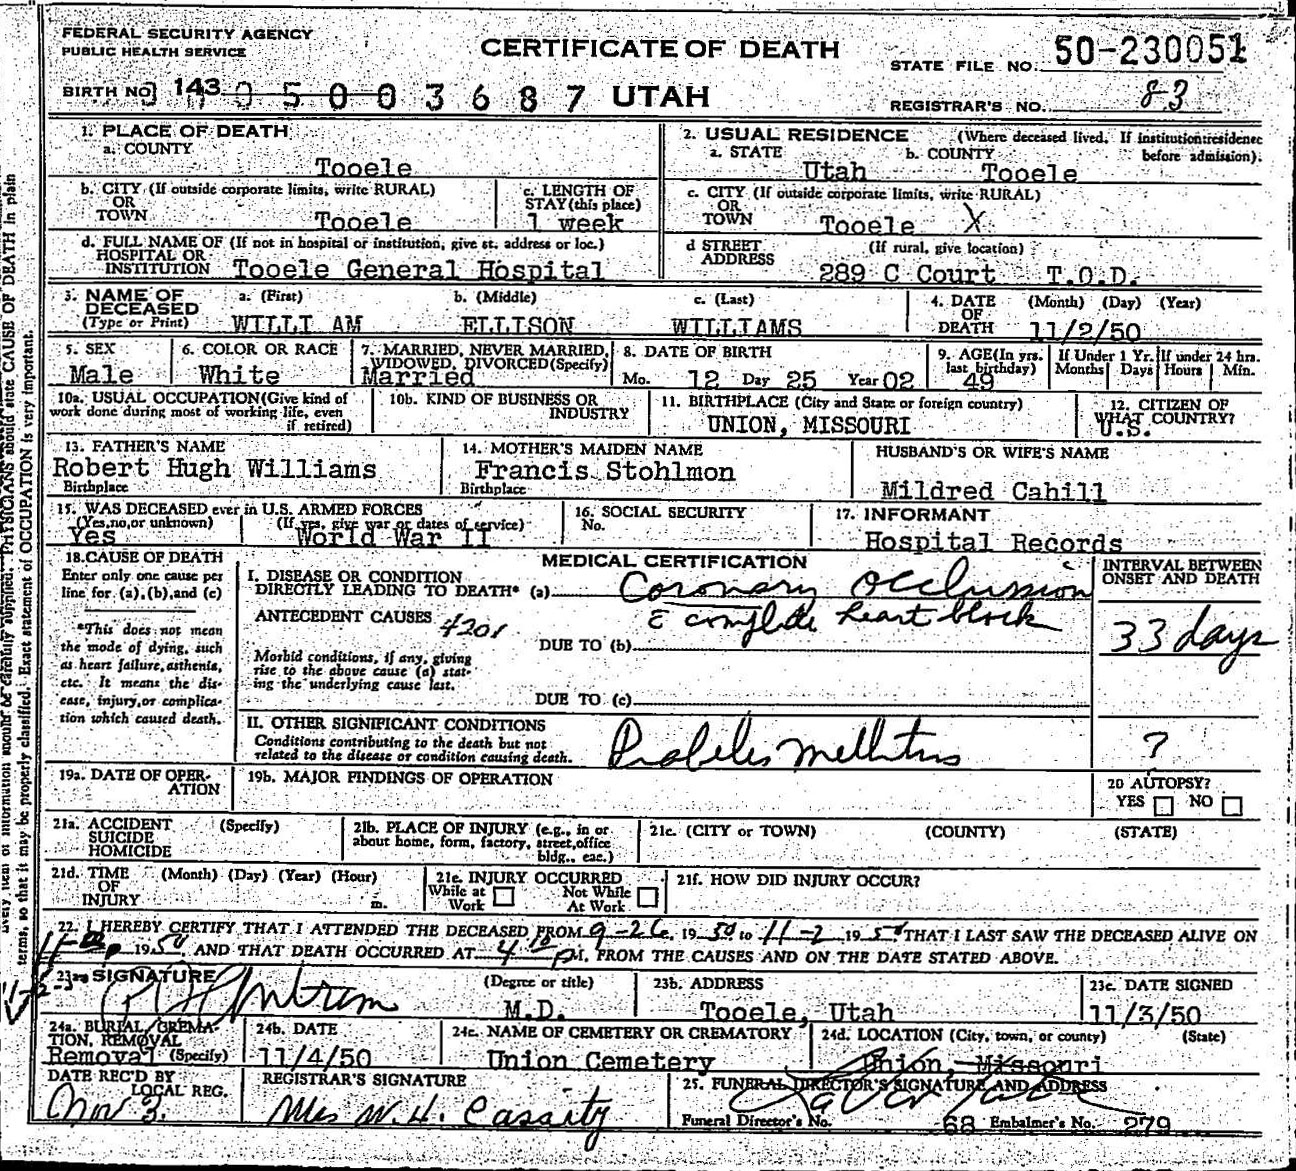 FEDERAL SECURITY AGENCY
PUBLIC HEALTH SERVICE
CERTIFICATE OF DEATH
STATE FILE NO. 50-230051
BIRTH NO. 143 0 5 0 0 3 6 8 7 UTAH
REGISTRAR'S NO. 83
1. PLACE OF DEATH
a. COUNTY
Tooele
2. USUAL RESIDENCE (Where deceased lived. If institution: residence before admission).
a. STATE Utah b. COUNTY Tooele
b. CITY (If outside corporate limits, write RURAL)
OR
TOWN Tooele
c. LENGTH OF
STAY (this place)
1 week
c. CITY (If outside corporate limits, write RURAL)
OR
TOWN Tooele X
d. FULL NAME OF (If not in hospital or institution, give st. address or loc.)
HOSPITAL OR
INSTITUTION Tooele General Hospital
d STREET (If rural, give location)
ADDRESS
289 C Court T.O.D.
3. NAME OF
DECEASED
(Type or Print)
a. (First) b. (Middle) c. (Last)
WILLI AM ELLISON WILLIAMS
4. DATE (Month) (Day) (Year)
OF
DEATH 11/2/50
5. SEX
Male
6. COLOR OR RACE
White
7. MARRIED, NEVER MARRIED,
WIDOWED, DIVORCED (Specify)
Married
8. DATE OF BIRTH
Mo. 12 Day 25 Year 02
9. AGE (In yrs.
last birthday)
49
If Under 1 Yr.
Months Days
If under 24 hrs.
Hours Min.
10a. USUAL OCCUPATION (Give kind of
work done during most of working life, even
if retired)
10b. KIND OF BUSINESS OR
INDUSTRY
11. BIRTHPLACE (City and State or foreign country)
UNION, MISSOURI
12. CITIZEN OF
WHAT COUNTRY?
U.S.
13. FATHER'S NAME
Robert Hugh Williams
Birthplace
14. MOTHER'S MAIDEN NAME
Francis Stohlmon
Birthplace
HUSBAND'S OR WIFE'S NAME
Mildred Cahill
15. WAS DECEASED ever in U.S. ARMED FORCES
(Yes, no, or unknown) (If yes, give war or dates of service)
Yes World War II
16. SOCIAL SECURITY
No.
17. INFORMANT
Hospital Records
18. CAUSE OF DEATH
Enter only one cause per
line for (a), (b), and (c)
*This does not mean
the mode of dying, such
as heart failure, asthenia,
etc. It means the dis-
ease, injury, or complica-
tion which caused death.
MEDICAL CERTIFICATION
I. DISEASE OR CONDITION
DIRECTLY LEADING TO DEATH* (a) Coronary Occlusion
c̄ complete heart block
ANTECEDENT CAUSES 4201
DUE TO (b)
Morbid conditions, if any, giving
rise to the above cause (a) stat-
ing the underlying cause last.
DUE TO (c)
INTERVAL BETWEEN
ONSET AND DEATH
33 days
II. OTHER SIGNIFICANT CONDITIONS
Conditions contributing to the death but not
related to the disease or condition causing death.
Diabetes Mellitus
?
19a. DATE OF OPER-
ATION
19b. MAJOR FINDINGS OF OPERATION
20 AUTOPSY?
YES NO
21a. ACCIDENT (Specify)
SUICIDE
HOMICIDE
21b. PLACE OF INJURY (e.g., in or
about home, form, factory, street, office
bldg., eac.)
21c. (CITY or TOWN) (COUNTY) (STATE)
21d. TIME (Month) (Day) (Year) (Hour)
OF
INJURY m.
21e. INJURY OCCURRED
While at Not While
Work At Work
21f. HOW DID INJURY OCCUR?
22. I HEREBY CERTIFY THAT I ATTENDED THE DECEASED FROM 9-26, 1950 to 11-2, 1950 THAT I LAST SAW THE DECEASED ALIVE ON
1950 AND THAT DEATH OCCURRED AT 4 10 pM, FROM THE CAUSES AND ON THE DATE STATED ABOVE.
23a. SIGNATURE
(Degree or title)
M.D.
23b. ADDRESS
Tooele, Utah
23c. DATE SIGNED
11/3/50
24a. BURIAL, CREMA-
TION, REMOVAL
Removal (Specify)
24b. DATE
11/4/50
24c. NAME OF CEMETERY OR CREMATORY
Union Cemetery
24d. LOCATION (City, town, or county) (State)
Union, Missouri
DATE REC'D BY
LOCAL REG.
Nov 3.
REGISTRAR'S SIGNATURE
Mrs W. H. Cassity
25. FUNERAL DIRECTOR'S SIGNATURE AND ADDRESS
Funeral Director's No. 68 Embalmer's No. 279
PHYSICIANS should state CAUSE OF DEATH in plain
terms, so that it may be properly classified. Exact statement of OCCUPATION is very important.